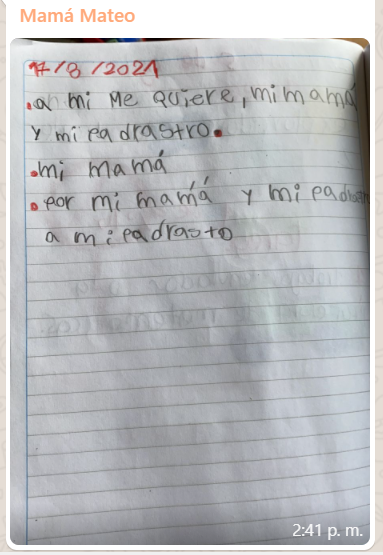 Mamá Mateo
17/8/2021
.a mi me quiere, mi mamá
y mi padrastro.
.mi mamá
.por mi mamá y mi
a mi padrasto
2:41 p. m.